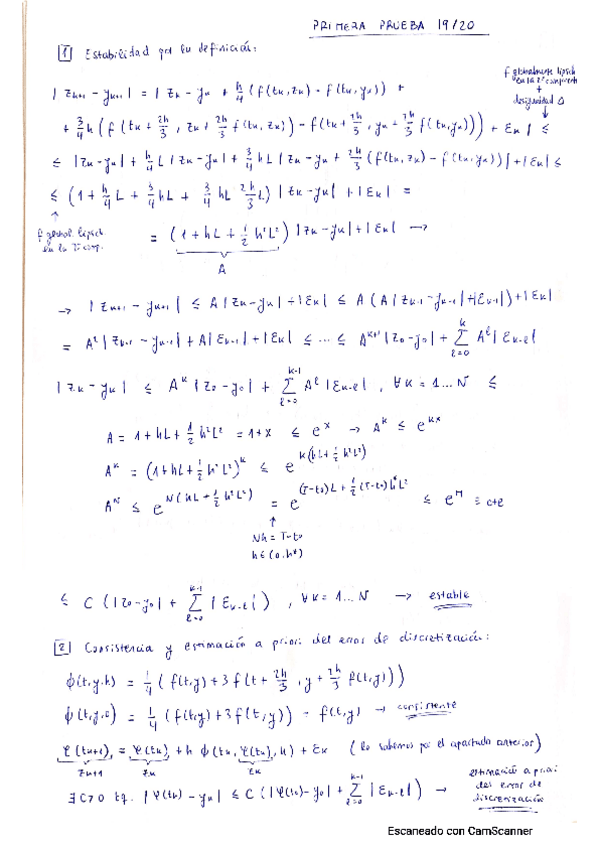 PRIMERA PRUEBA 19/20
1 Estabilidad por la definición:
f globalmente lipsch
en la 2ª componente
+
desigualdad Δ
| z_{k+1} - y_{k+1} | = | z_k - y_k + h/4 ( f(t_k, z_k) - f(t_k, y_k) ) +
+ 3/4 h ( f( t_k + 2h/3 , z_k + 2h/3 f(t_k, z_k) ) - f( t_k + 2h/3 , y_k + 2h/3 f(t_k, y_k) ) ) + ε_k | ≤
≤ | z_k - y_k | + h/4 L | z_k - y_k | + 3/4 h L | z_k - y_k + 2h/3 ( f(t_k, z_k) - f(t_k, y_k) ) | + | ε_k | ≤
≤ ( 1 + h/4 L + 3/4 hL + 3/4 hL 2h/3 L ) | z_k - y_k | + | ε_k | =
f global. lipsch
en la 2ª comp.
= ( 1 + hL + 1/2 h²L² ) | z_k - y_k | + | ε_k | →
A
→ | z_{k+1} - y_{k+1} | ≤ A | z_k - y_k | + | ε_k | ≤ A ( A | z_{k-1} - y_{k-1} | + | ε_{k-1} | ) + | ε_k |
= A² | z_{k-1} - y_{k-1} | + A | ε_{k-1} | + | ε_k | ≤ ... ≤ A^{k+1} | z_0 - y_0 | + Σ_{l=0}^{k} A^l | ε_{k-l} |
| z_k - y_k | ≤ A^k | z_0 - y_0 | + Σ_{l=0}^{k-1} A^l | ε_{k-l} | , ∀k = 1...N ≤
A = 1 + hL + 1/2 h²L² = 1 + x ≤ e^x → A^k ≤ e^{kx}
A^k = ( 1 + hL + 1/2 h²L² )^k ≤ e^{k(hL + 1/2 h²L²)}
A^N ≤ e^{N(hL + 1/2 h²L²)} = e^{(T-t_0)L + 1/2 (T-t_0) h*L²} ≤ e^M ≡ cte
↑
Nh = T-t_0
h ∈ (0, h*)
≤ C ( | z_0 - y_0 | + Σ_{l=0}^{k-1} | ε_{k-l} | ) , ∀k = 1...N → estable
2 Consistencia y estimación a priori del error de discretización:
ϕ(t,y,h) = 1/4 ( f(t,y) + 3 f( t + 2h/3 , y + 2h/3 f(t,y) ) )
ϕ(t,y,0) = 1/4 ( f(t,y) + 3 f(t,y) ) = f(t,y) → consistente
φ(t_{k+1}) = φ(t_k) + h ϕ(t_k, φ(t_k), h) + ε_k ( lo sabemos por el apartado anterior )
z_{k+1} z_k z_k
∃ C>0 tq. | φ(t_k) - y_k | ≤ C ( | φ(t_0) - y_0 | + Σ_{l=0}^{k-1} | ε_{k-l} | ) →
estimación a priori
del error de
discretización
Escaneado con CamScanner